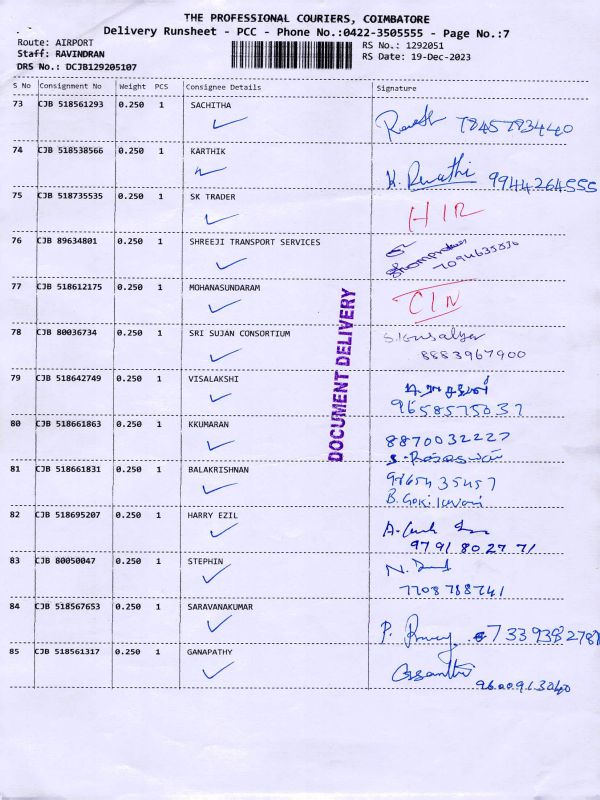 THE PROFESSIONAL COURIERS, COIMBATORE
Delivery Runsheet - PCC - Phone No.:0422-3505555 - Page No.:7
Route: AIRPORT RS No.: 1292051
Staff: RAVINDRAN RS Date: 19-Dec-2023
DRS No.: DCJB129205107
S No Consignment No Weight PCS Consignee Details Signature
73 CJB 518561293 0.250 1 SACHITHA
Ramesh 78457834440
74 CJB 518538566 0.250 1 KARTHIK
K. Revathi 9944264555
75 CJB 518735535 0.250 1 SK TRADER
HIR
76 CJB 89634801 0.250 1 SHREEJI TRANSPORT SERVICES
77 CJB 518612175 0.250 1 MOHANASUNDARAM
CIN
DOCUMENT DELIVERY
78 CJB 80036734 0.250 1 SRI SUJAN CONSORTIUM
S. Kousalya
8883967900
79 CJB 518642749 0.250 1 VISALAKSHI
9658575037
80 CJB 518661863 0.250 1 KKUMARAN
8870032227
81 CJB 518661831 0.250 1 BALAKRISHNAN
9865435457
B. Gokilavani
82 CJB 518695207 0.250 1 HARRY EZIL
9791802771
83 CJB 80050047 0.250 1 STEPHIN
7708788741
84 CJB 518567653 0.250 1 SARAVANAKUMAR
P. 7339382787
85 CJB 518561317 0.250 1 GANAPATHY
9600913040